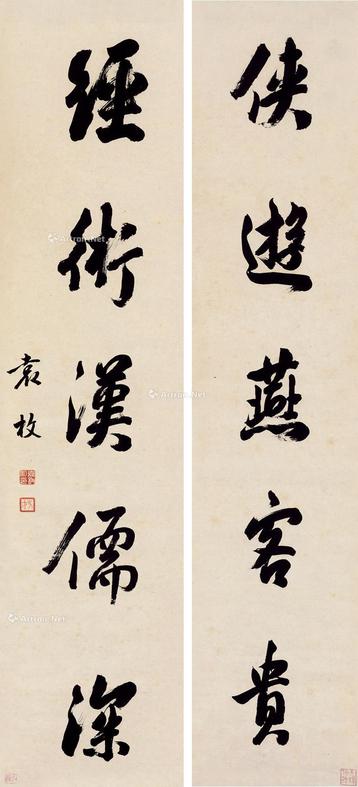 俠遊燕客貴
經術漢儒深
袁枚
Artron.Net
Artron.Net
Artron.Net